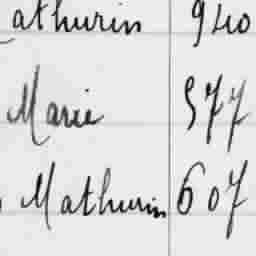 athurin 940
Marie 577
Mathurin 607